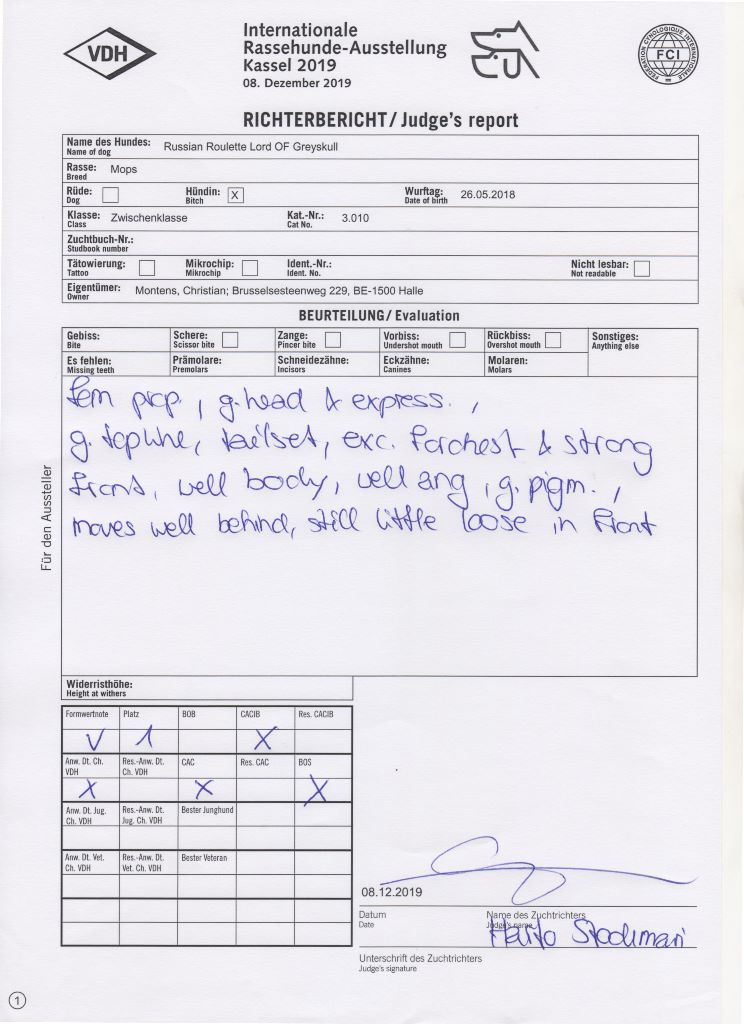 VDH
Internationale
Rassehunde-Ausstellung
Kassel 2019
08. Dezember 2019
FEDERATION CYNOLOGIQUE INTERNATIONALE
FCI
RICHTERBERICHT/Judge's report
Name des Hundes: Russian Roulette Lord OF Greyskull
Name of dog
Rasse: Mops
Breed
Rüde: Hündin: X Wurftag: 26.05.2018
Dog Bitch Date of birth
Klasse: Zwischenklasse Kat.-Nr.: 3.010
Class Cat No.
Zuchtbuch-Nr.:
Studbook number
Tätowierung: Mikrochip: Ident.-Nr.: Nicht lesbar:
Tattoo Mikrochip Ident. No. Not readable
Eigentümer: Montens, Christian; Brusselsesteenweg 229, BE-1500 Halle
Owner
BEURTEILUNG/Evaluation
Gebiss: Schere: Zange: Vorbiss: Rückbiss: Sonstiges:
Bite Scissor bite Pincer bite Undershot mouth Overshot mouth Anything else
Es fehlen: Prämolare: Schneidezähne: Eckzähne: Molaren:
Missing teeth Premolars Incisors Canines Molars
fem prop., g. head & express.,
g. topline, tailset, exc. forchest & strong
front, well body, well ang, g. pigm.,
moves well behind, still little loose in front
Für den Aussteller
Widerristhöhe:
Height at withers
Formwertnote Platz BOB CACIB Res. CACIB
V 1 X
Anw. Dt. Ch. VDH Res.-Anw. Dt. Ch. VDH CAC Res. CAC BOS
X X X
Anw. Dt. Jug. Ch. VDH Res.-Anw. Dt. Jug. Ch. VDH Bester Junghund
Anw. Dt. Vet. Ch. VDH Res.-Anw. Dt. Vet. Ch. VDH Bester Veteran
08.12.2019
Datum Name des Zuchtrichters
Date Judge's name
Unterschrift des Zuchtrichters
Judge's signature
1